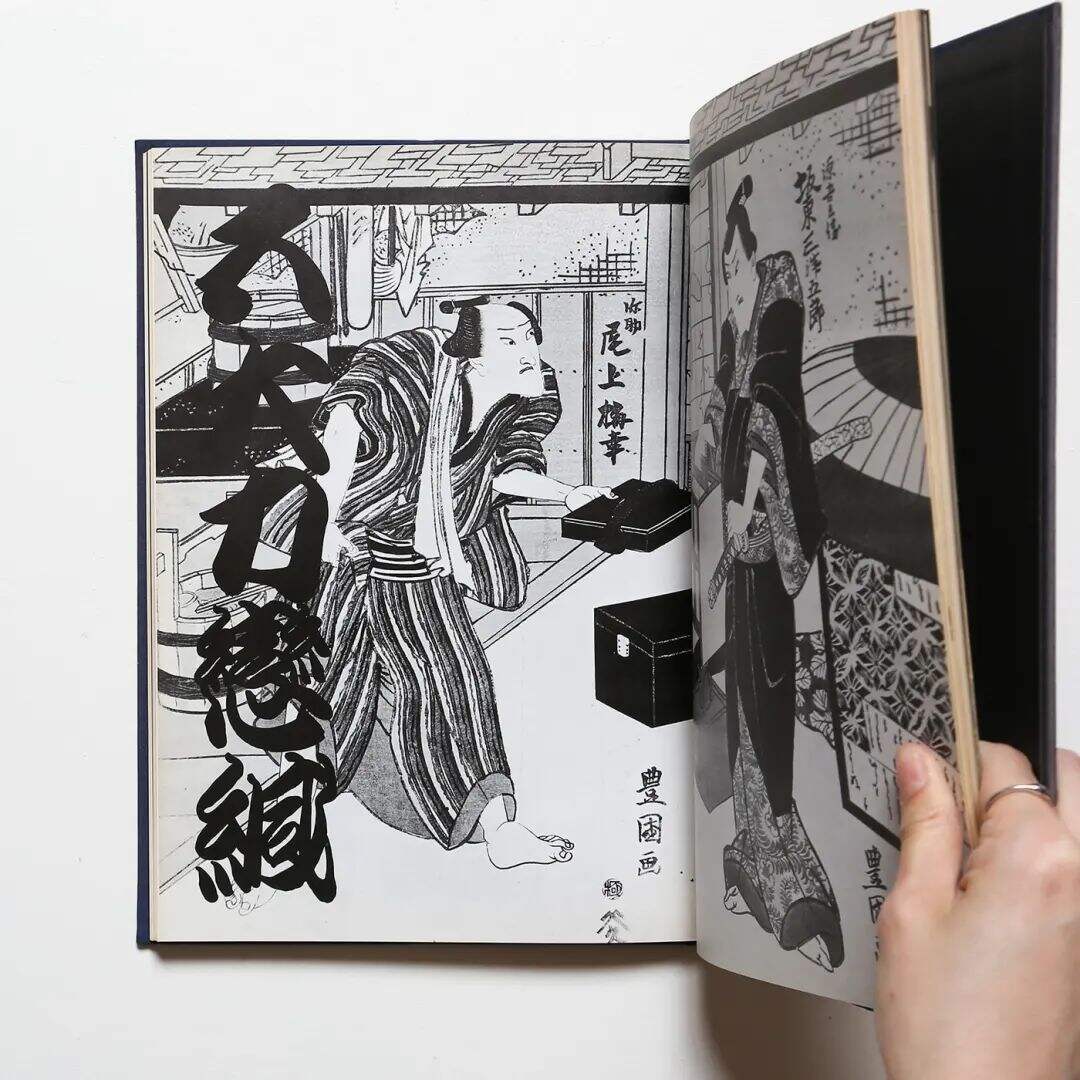 五大力戀緘
弥助
尾上梅幸
豊國画
極
源五兵衛
坂東三津五郎
豊